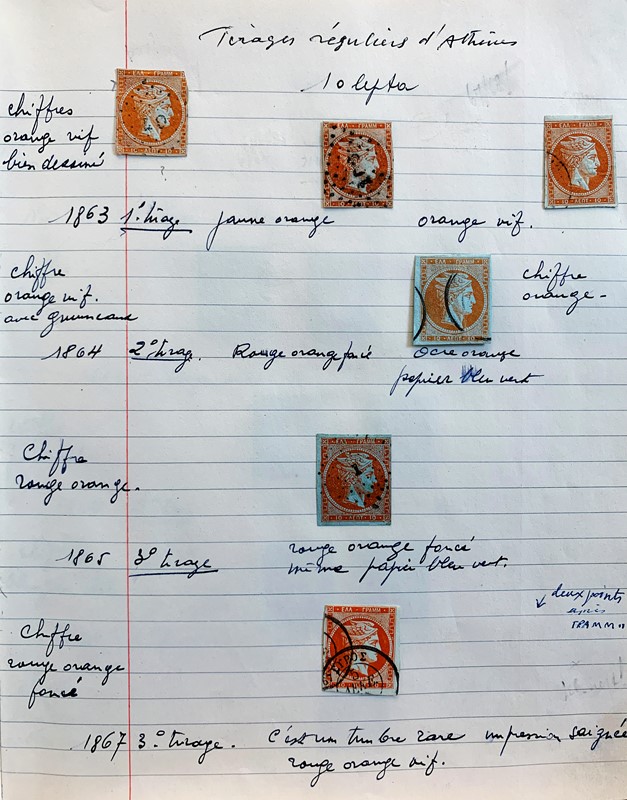 Tirages réguliers d'Athènes
10 lepta
chiffres
orange vif
bien dessiné
ΕΛΛ ΓΡΑΜΜ
10 ΛΕΠΤ 10
ΕΛΛ ΓΡΑΜΜ
10 ΛΕΠΤ 10
ΕΛΛ ΓΡΑΜΜ
10 ΛΕΠΤ 10
1863 1° tirage jaune orange orange vif.
chiffre
orange vif.
avec grumeaux
ΕΛΛ ΓΡΑΜΜ
10 ΛΕΠΤ 10
chiffre
orange-
1864 2° tirage. Rouge orange foncé Ocre orange
papier bleu vert
Chiffre
rouge orange.
ΕΛΛ ΓΡΑΜΜ
10 ΛΕΠΤ 10
1865 3° tirage rouge orange foncé
même papier bleu vert.
deux points
après
ΓΡΑΜΜ
Chiffre
rouge orange
foncé
ΕΛΛ ΓΡΑΜΜ
1867 3° tirage. C'est un timbre rare impression soignée
rouge orange vif.